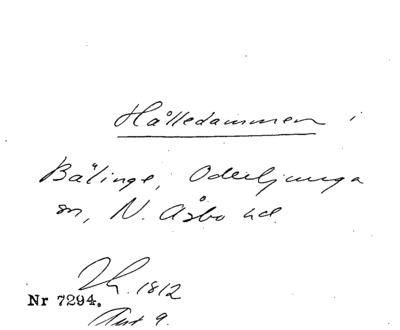 Hålledammen i
Bälinge, Oderljunga
sn, N. Åsbo hd.
1812
Nr 7294.
9.